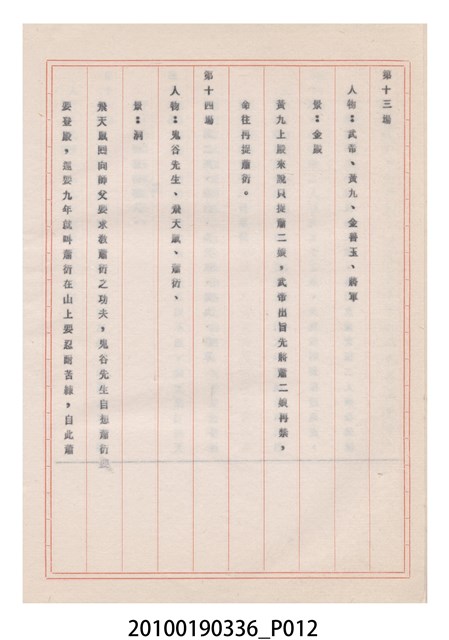 第十三場
人物：武帝、黃九、金晉玉、將軍
景：金殿
黃九上殿來說只捉蕭二娘，武帝出旨先將蕭二娘再禁，
命往再捉蕭衍。
第十四場
人物：鬼谷先生、飛天鼠、蕭衍、
景：洞
飛天鼠回向師父要求教蕭衍之功夫，鬼谷先生自知蕭衍
要登殿，還要九年就叫蕭衍在山上要忍耐苦練，自此蕭
20100190336_P012